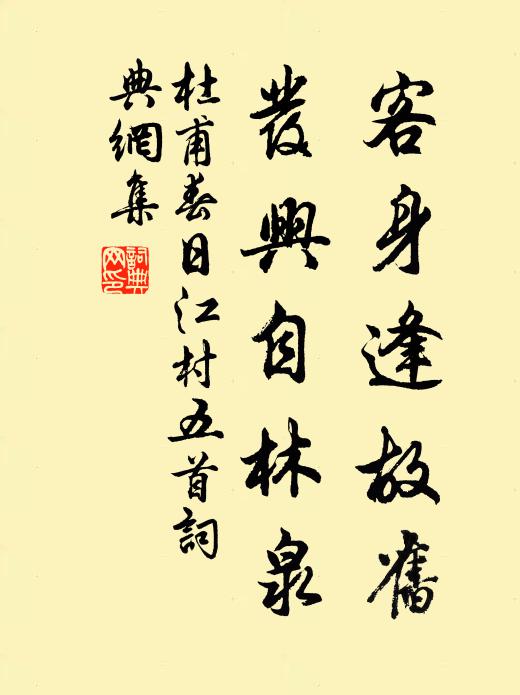 客身逢故舊
發興自林泉
杜甫春日江村五首詞
典網集
詞典网印